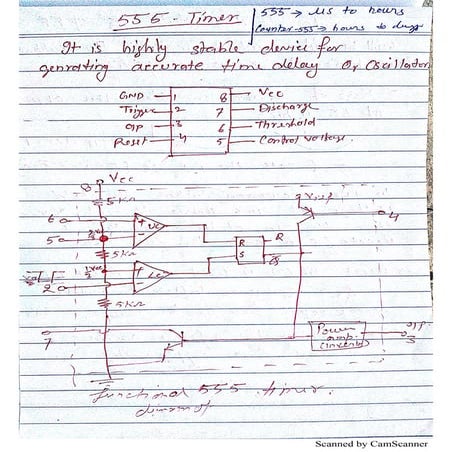 555 - Timer
555 → μs to hours
Counter-555 → hours to days
It is highly stable device for
genrating accurate time delay or oscillation
GND 1 8 Vcc
Trigger 2 7 Discharge
O/P 3 6 Threshold
Reset 4 5 Control Voltage
8 Vcc
5kΩ
Vref
6 + UC 4
5 -
R R
5kΩ S Q
+ LC
2 -
5kΩ
7 Power O/P
amp. 3
(invert)
functional 555 timer
Scanned by CamScanner